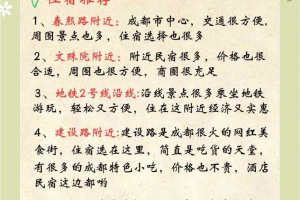 住宿推荐
1、春熙路附近：成都市中心，交通很方便，
周围景点也多，住宿选择也很多
2、文殊院附近：附近民宿很多，价格也很
合适，周围也很方便，商圈很充足
3、地铁2号线沿线:沿线景点很多乘坐地铁
游玩，轻松又方便，住在这附近经济又实惠
4、建设路附近:建设路是成都很火的网红美
食街，住宿选在这里，简直是吃货的天堂，
有很多的成都特色小吃，价格也不贵，酒店
民宿这边都哟